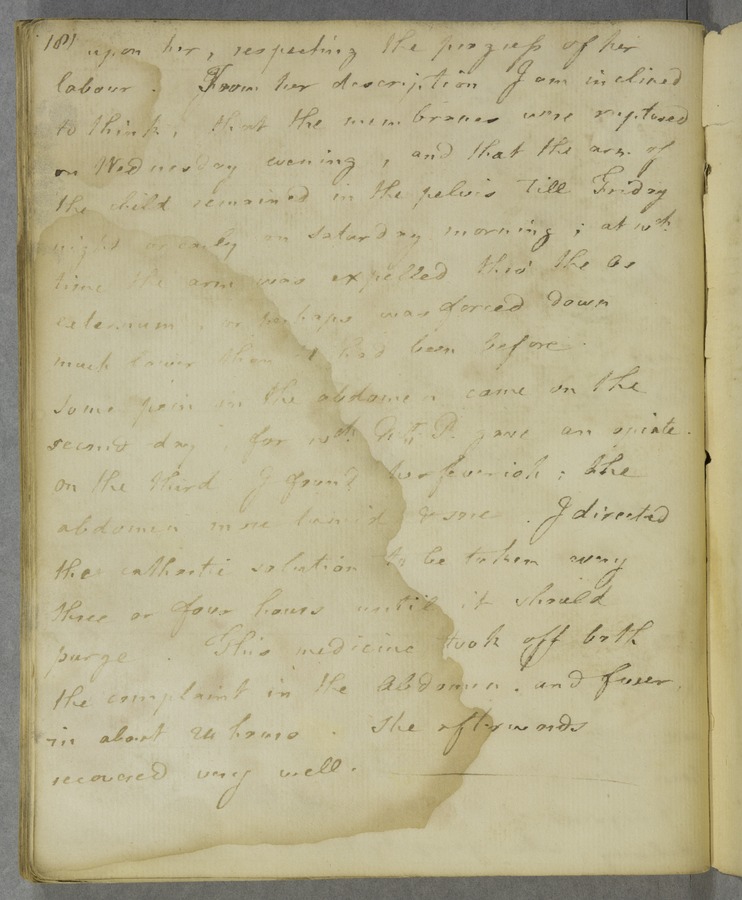 181 upon her, respecting the progress of her
labour. From her description I am inclined
to think, that the membranes were ruptured
on Wednesday evening, and that the arm of
the child remained in the pelvis till Friday
night or early on Saturday morning; at wch
time the arm was expelled thro' the os
externum, or perhaps was forced down
much lower than it had been before.
Some pain in the abdomen came on the
second day, for wch gave an opiate.
on the third I found her feverish; the
abdomen more & sore. I directed
the cathartic solution to be taken every
three or four hours until it should
purge. This medicine took off both
the complaint in the Abdomen, and fever
in about 24 hours. She afterwards
recovered very well.